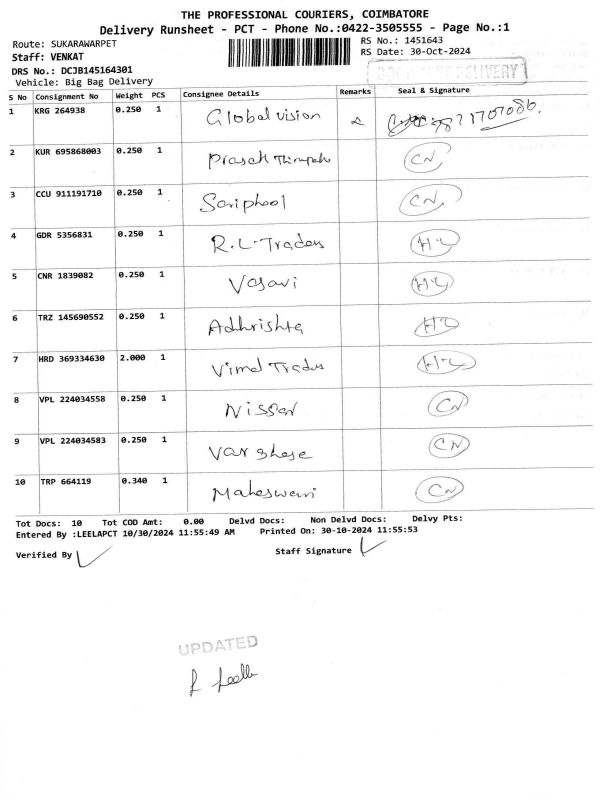 THE PROFESSIONAL COURIERS, COIMBATORE
Delivery Runsheet - PCT - Phone No.:0422-3505555 - Page No.:1
Route: SUKARAWARPET
RS No.: 1451643
Staff: VENKAT
RS Date: 30-Oct-2024
DRS No.: DCJB145164301
Vehicle: Big Bag Delivery
DELIVERY
S No Consignment No Weight PCS Consignee Details Remarks Seal & Signature
1 KRG 264938 0.250 1 Global vision
2 KUR 695868003 0.250 1 CN
3 CCU 911191710 0.250 1 Sariphool CN
4 GDR 5356831 0.250 1 R.L-Traders
5 CNR 1839082 0.250 1 Vasavi
6 TRZ 145690552 0.250 1 Adhrishta
7 HRD 369334630 2.000 1 Vimal Traders
8 VPL 224034558 0.250 1 Nissar CN
9 VPL 224034583 0.250 1 Varghese CN
10 TRP 664119 0.340 1 Maheswari CN
Tot Docs: 10 Tot COD Amt: 0.00 Delvd Docs: Non Delvd Docs: Delvy Pts:
Entered By :LEELAPCT 10/30/2024 11:55:49 AM Printed On: 30-10-2024 11:55:53
Verified By Staff Signature
UPDATED